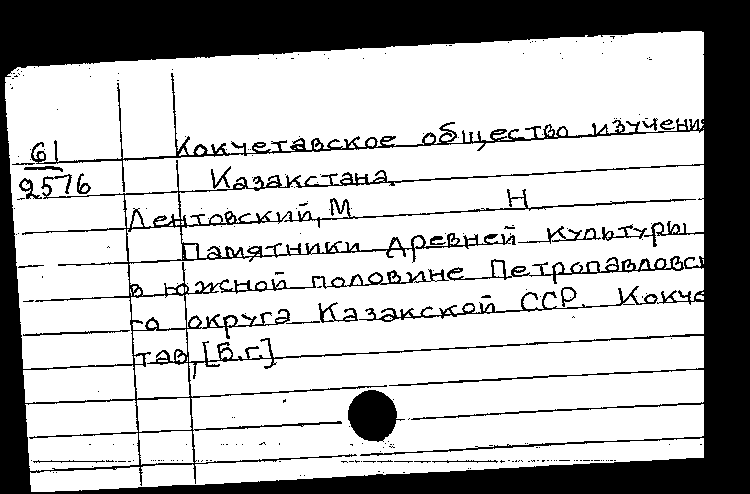 61
2576
Кокчетавское общество изучени
Казакстана.
Лентовский, М Н
Памятники древней культуры
в южной половине Петропавловс
го округа Казакской ССР. Кокче
тав, [Б.г.]